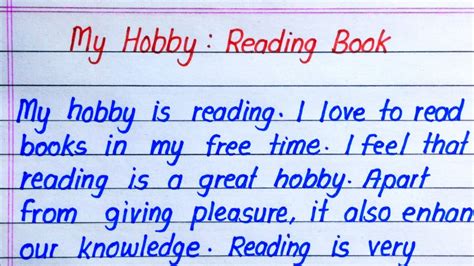 My Hobby : Reading Book
My hobby is reading. I love to read
books in my free time. I feel that
reading is a great hobby. Apart
from giving pleasure, it also enhan
our knowledge. Reading is very